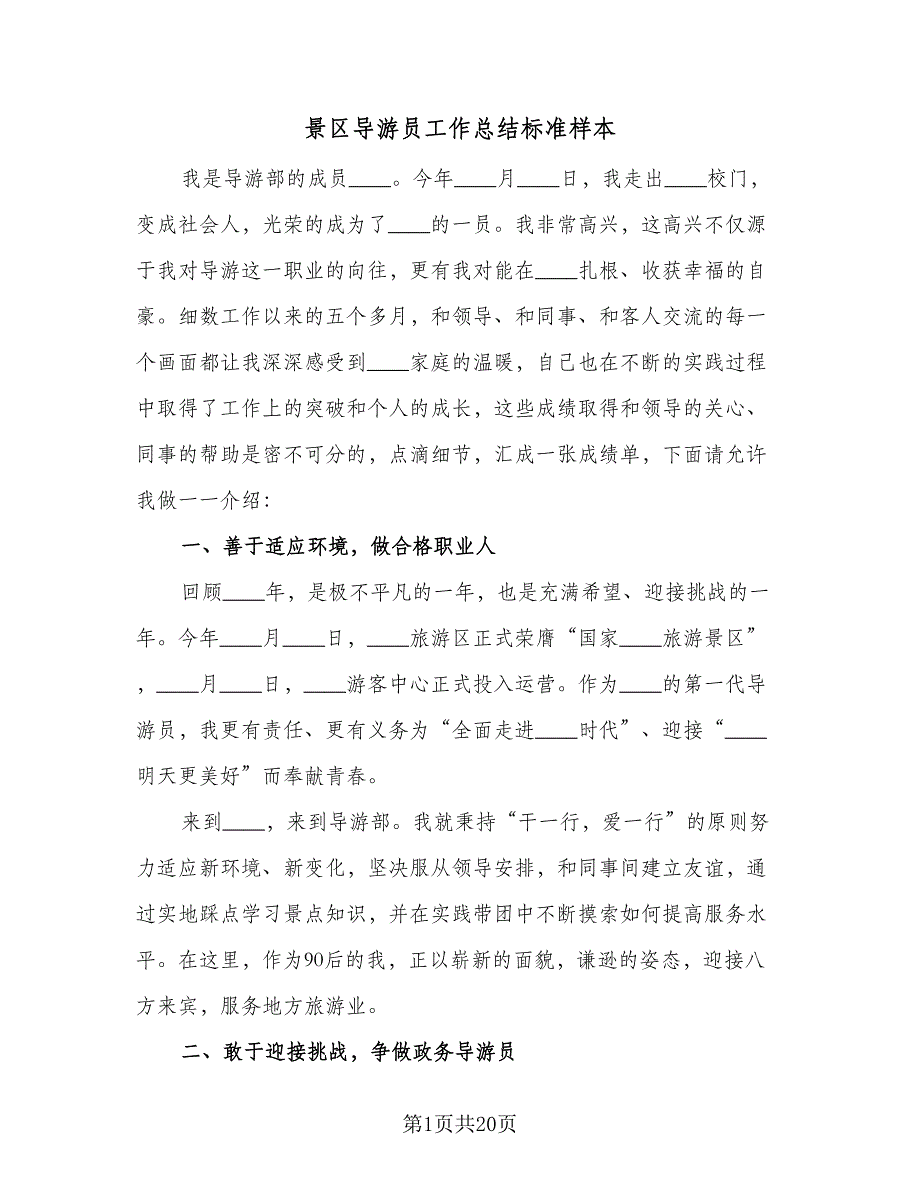 景区导游员工作总结标准样本
我是导游部的成员____。今年____月____日，我走出____校门，
变成社会人，光荣的成为了____的一员。我非常高兴，这高兴不仅源
于我对导游这一职业的向往，更有我对能在____扎根、收获幸福的自
豪。细数工作以来的五个多月，和领导、和同事、和客人交流的每一
个画面都让我深深感受到____家庭的温暖，自己也在不断的实践过程
中取得了工作上的突破和个人的成长，这些成绩取得和领导的关心、
同事的帮助是密不可分的，点滴细节，汇成一张成绩单，下面请允许
我做一一介绍：
一、善于适应环境，做合格职业人
回顾____年，是极不平凡的一年，也是充满希望、迎接挑战的一
年。今年____月____日，____旅游区正式荣膺“国家____旅游景区”
，____月____日，____游客中心正式投入运营。作为____的第一代导
游员，我更有责任、更有义务为“全面走进____时代”、迎接“____
明天更美好”而奉献青春。
来到____，来到导游部。我就秉持“干一行，爱一行”的原则努
力适应新环境、新变化，坚决服从领导安排，和同事间建立友谊，通
过实地踩点学习景点知识，并在实践带团中不断摸索如何提高服务水
平。在这里，作为90后的我，正以崭新的面貌，谦逊的姿态，迎接八
方来宾，服务地方旅游业。
二、敢于迎接挑战，争做政务导游员
第1页共20页